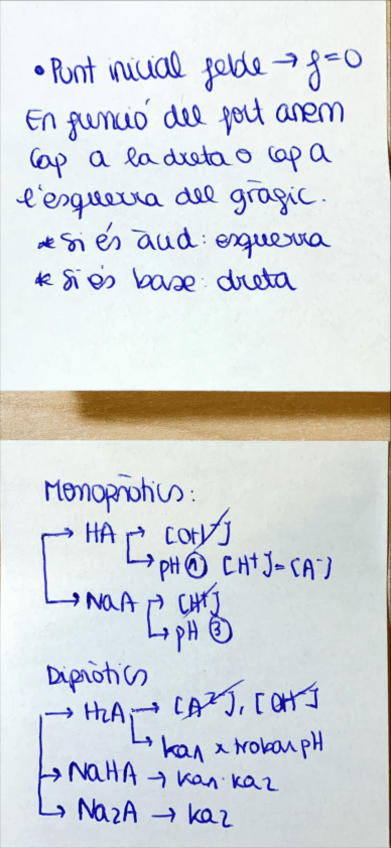 • Punt inicial feble → f=0
En funció del fort anem
cap a la dreta o cap a
l'esquerra del gràfic.
* Si és àcid: esquerra
* Si és base: dreta
Monopròtics:
→ HA → [OH⁻]
→ pH ① [H⁺]=[A⁻]
→ NaA → [H⁺]
→ pH ③
Dipròtics
→ H₂A → [A²⁻], [OH⁻]
→ ka1 x trobar pH
→ NaHA → ka1·ka2
→ Na₂A → ka2